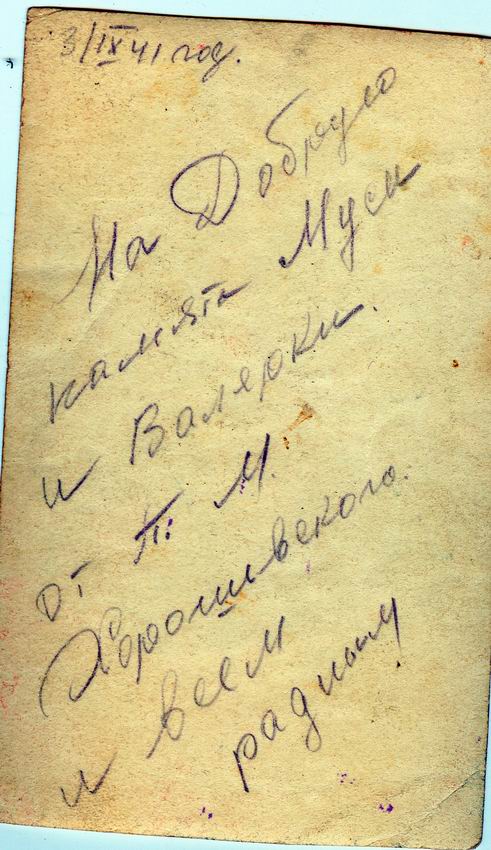 3/IX 41 год.
На Добрую
памята Муси
и Валерки.
от П. М.
Хорошивского.
и всем
радным